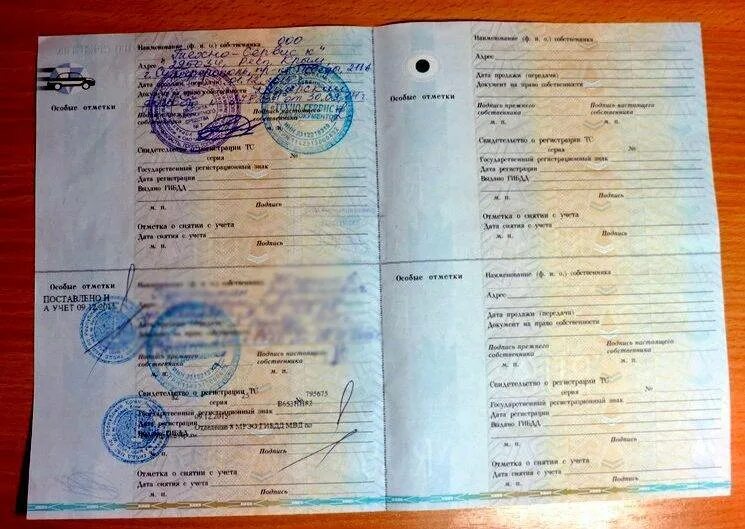 Наименование (ф. и. о.) собственника ООО
"Техно-Сервис К"
Адрес 295034, Респ. Крым,
г. Симферополь,
Дата продажи (передачи)
Документ на право собственности
Особые отметки
Подпись прежнего
собственника
Подпись настоящего
собственника
м. п.
Свидетельство о регистрации ТС
серия №
Государственный регистрационный знак
Дата регистрации
Выдано ГИБДД
м. п. Подпись
Отметка о снятии с учета
Дата снятия с учета
м. п. Подпись
Наименование (ф. и. о.) собственника
Адрес
Дата продажи (передачи)
Документ на право собственности
Особые отметки
Подпись прежнего
собственника
Подпись настоящего
собственника
м. п. м. п.
Свидетельство о регистрации ТС
серия №
Государственный регистрационный знак
Дата регистрации
Выдано ГИБДД
м. п. Подпись
Отметка о снятии с учета
Дата снятия с учета
м. п. Подпись
Особые отметки
Наименование (ф. и. о.) собственника
ПОСТАВЛЕНО Н
А УЧЕТ 09.12.2015
Адрес
Подпись прежнего
собственника
Подпись настоящего
собственника
м. п.
Свидетельство о регистрации ТС
серия № 795675
Государственный регистрационный знак
Дата регистрации 09.12.2015
Выдано ГИБДД Отделение МРЭО ГИБДД МВД по
м. п. Подпись
Отметка о снятии с учета
Дата снятия с учета
м. п. Подпись
Особые отметки
Наименование (ф. и. о.) собственника
Адрес
Дата продажи (передачи)
Документ на право собственности
Подпись прежнего
собственника
Подпись настоящего
собственника
м. п. м. п.
Свидетельство о регистрации ТС
серия №
Государственный регистрационный знак
Дата регистрации
Выдано ГИБДД
м. п. Подпись
Отметка о снятии с учета
Дата снятия с учета
м. п. Подпись